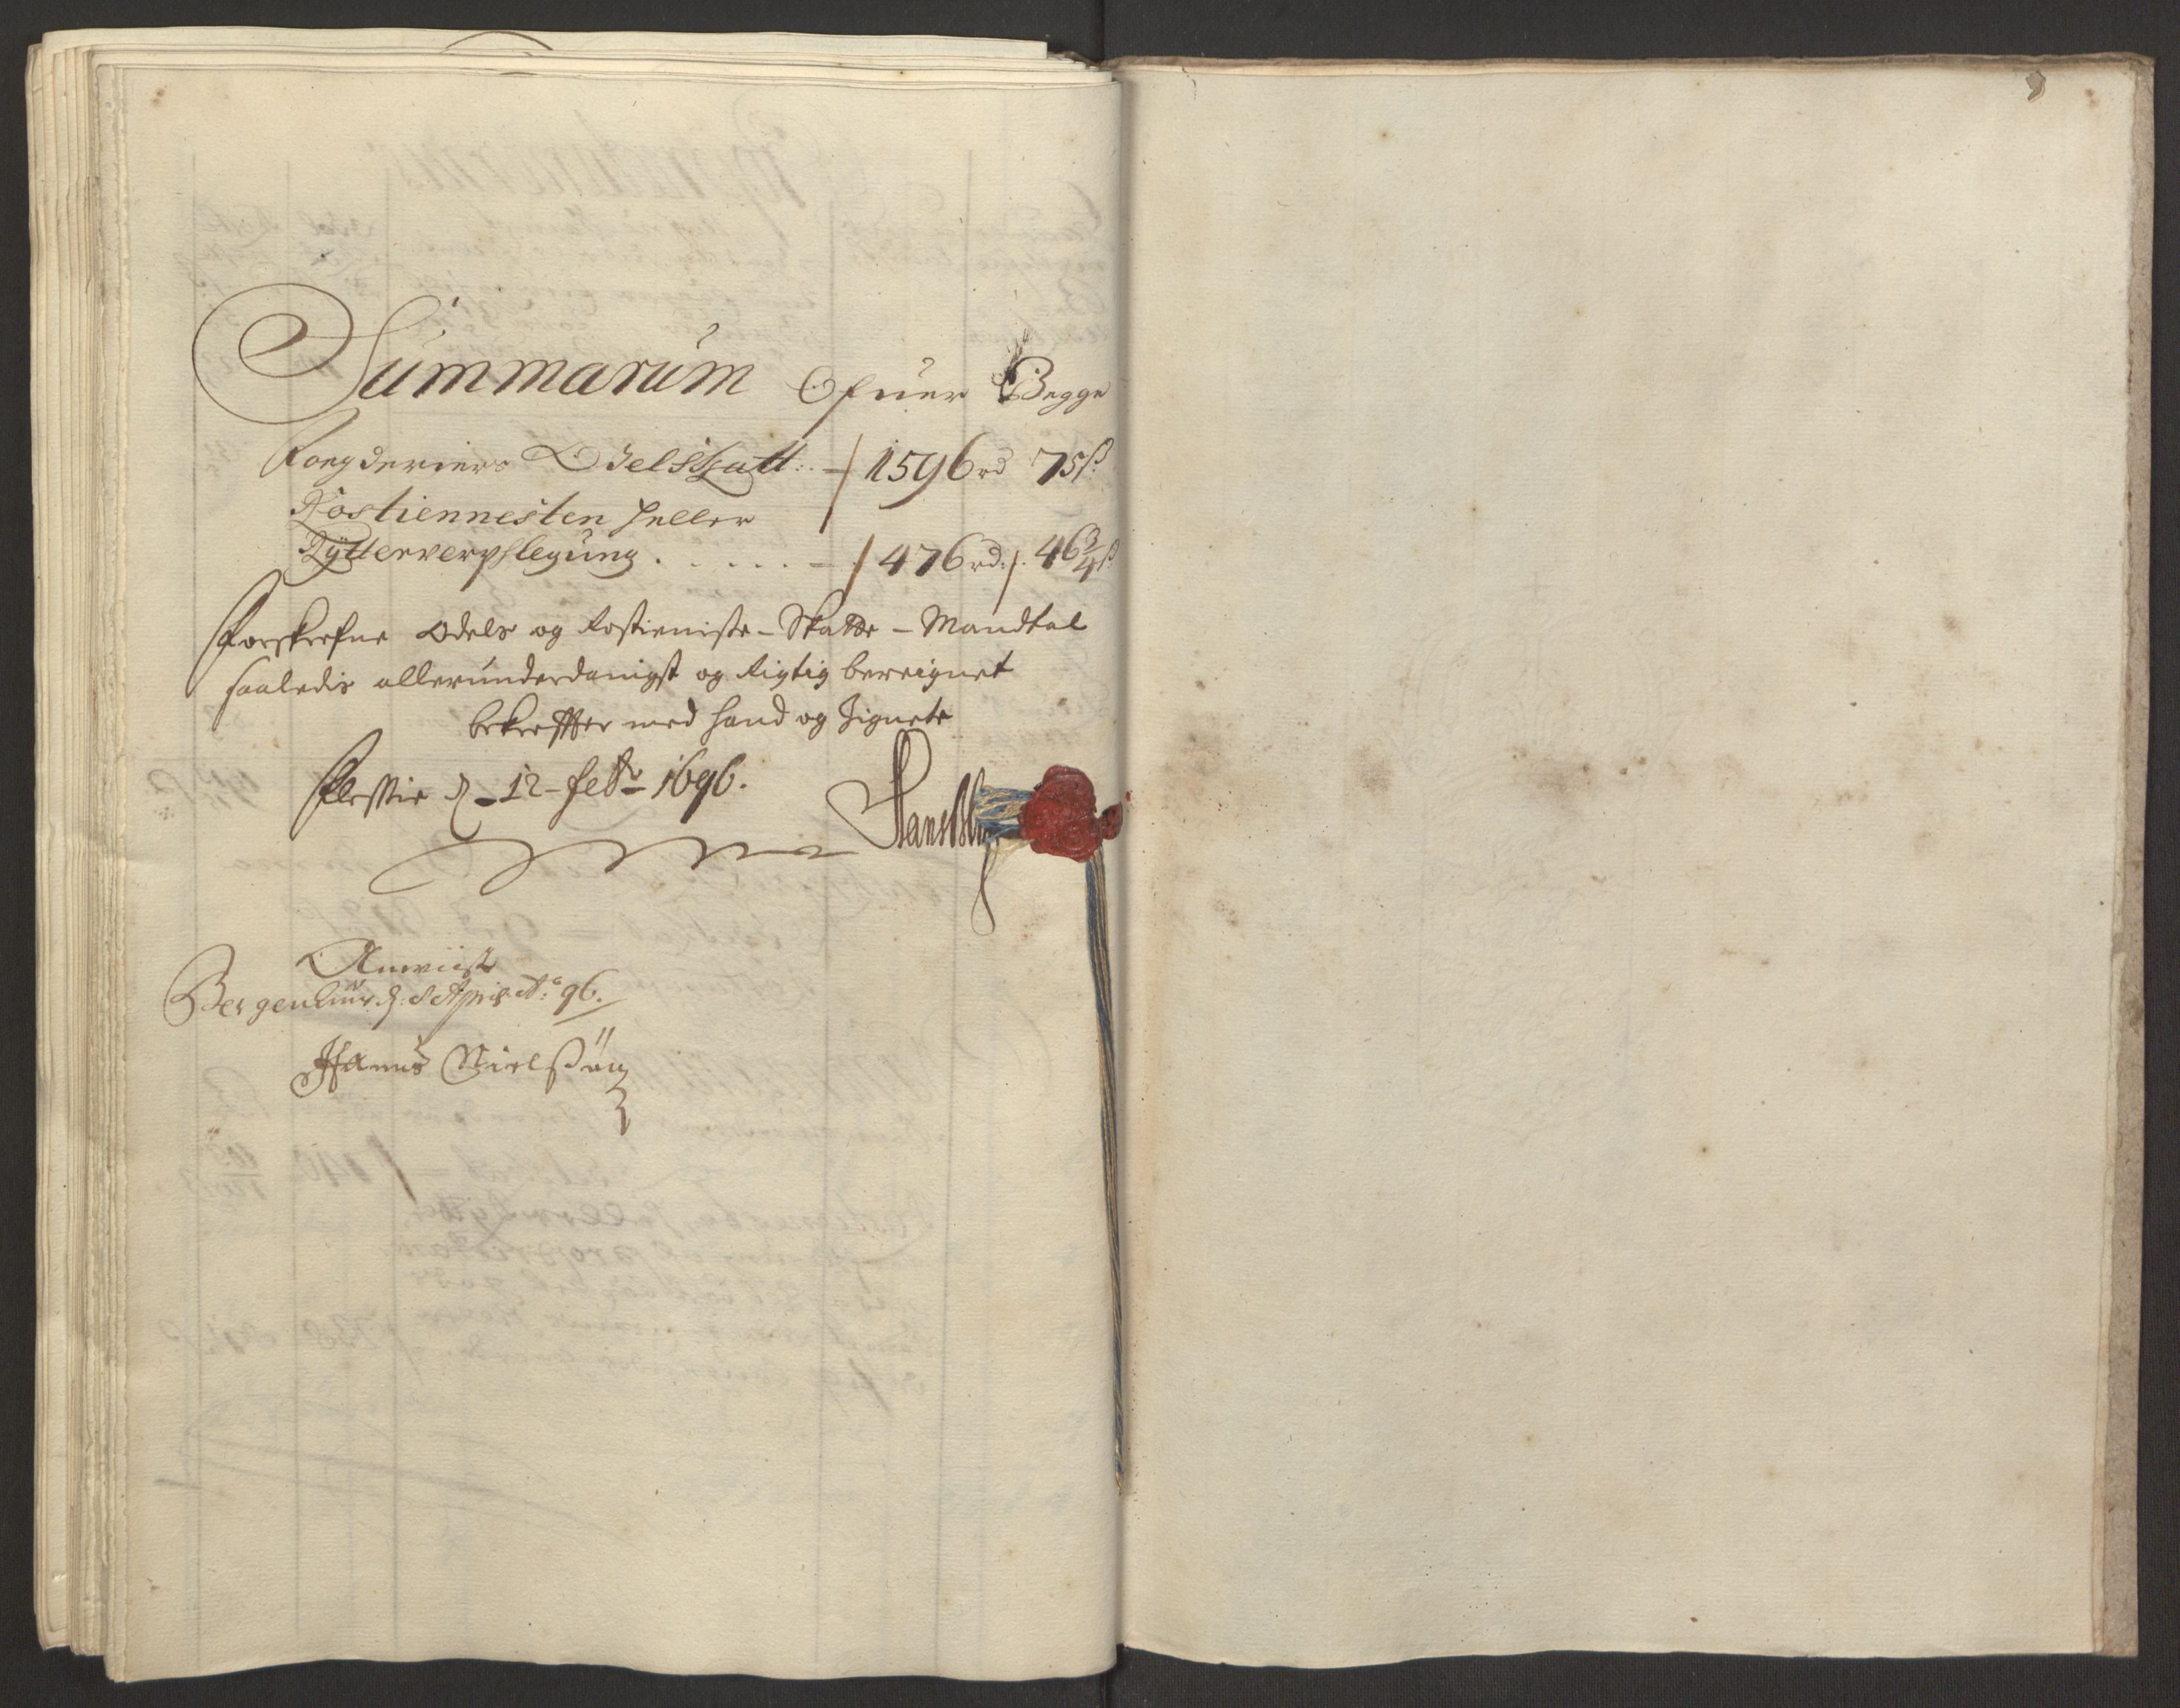 Summarum Ofuer Begge
Fougderiers Odelskatt: — 1596 rd 75 ß
Rostiennesten heller
Rÿtterverpflegung . . . . . — 476 rd: 46 3/4 ß
Forskrefne Odels og Rostieniste-Skatte-Mandtal
saaledis allerunderdanigst og Rigtig beregnet
bekreffter med haand og Zignete
d. 12 febr 1696.
Hans
Anviist
Bergenhuus d: 8 April Ao: 96.
Hanns Nielsøn
9